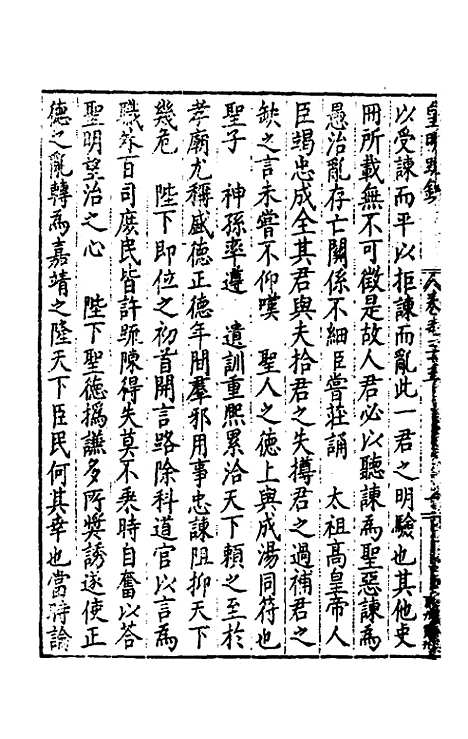 皇明疏鈔
以受諫而平以拒諫而亂此一君之明驗也其他史
冊所載無不可徵是故人君必以聽諫爲聖惡諫爲
愚治亂存亡關係不細臣嘗莊誦 太祖高皇帝人
臣竭忠成全其君與夫拾君之失撙君之過補君之
缺之言未嘗不仰嘆 聖人之德上與成湯同符也
聖子 神孫率遵 遺訓重熙累洽天下賴之至於
孝廟尤稱盛德正德年間羣邪用事忠諫阻抑天下
幾危 陛下即位之初首開言路除科道官以言爲
職外百司庶民皆許疏陳得失莫不乘時自奮以答
聖明望治之心 陛下聖德撝謙多所奬誘遂使正
德之亂轉爲嘉靖之隆天下臣民何其幸也當時論